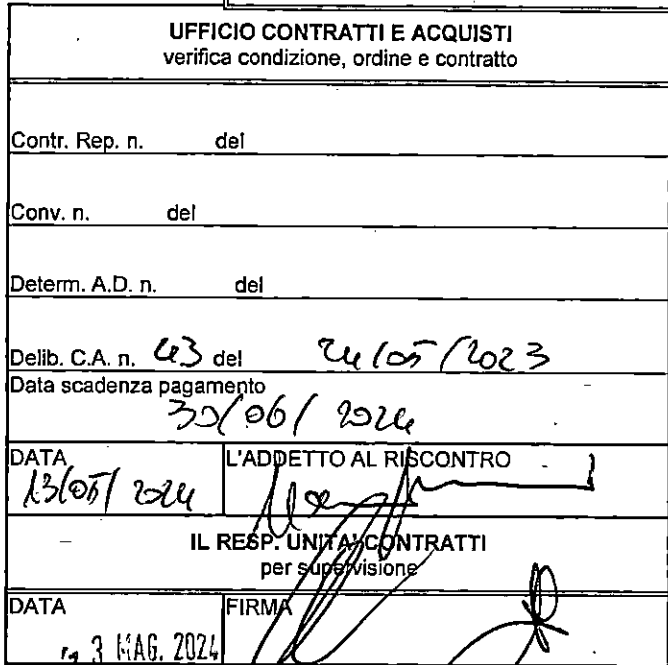 UFFICIO CONTRATTI E ACQUISTI
verifica condizione, ordine e contratto
Contr. Rep. n. del
Conv. n. del
Determ. A.D. n. del
Delib. C.A. n. 43 del 24/05/2023
Data scadenza pagamento
30/06/2024
DATA L'ADDETTO AL RISCONTRO
13/05/2024
IL RESP. UNITA' CONTRATTI
per supervisione
DATA FIRMA
3 MAG. 2024